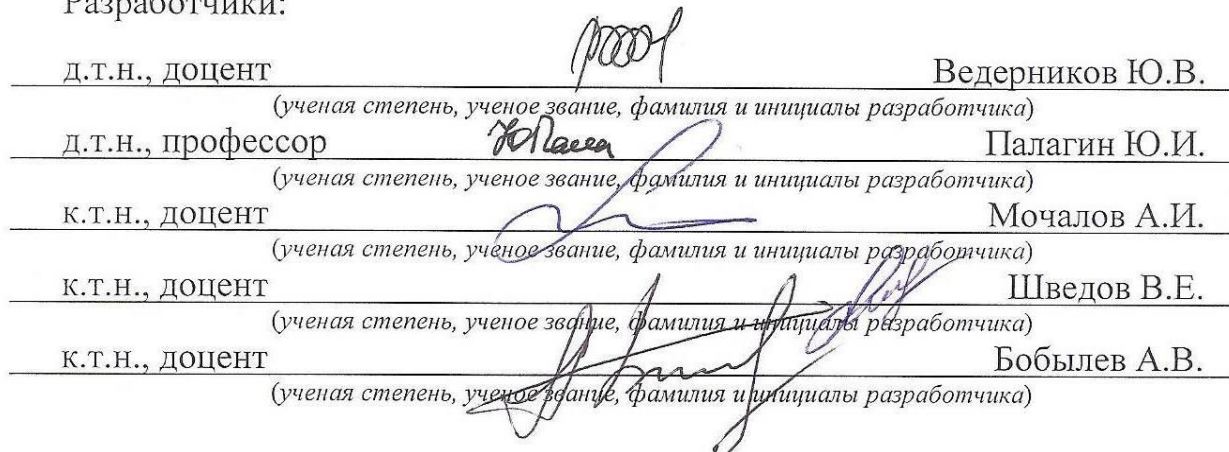 Разработчики:
д.т.н., доцент Ведерников Ю.В.
(ученая степень, ученое звание, фамилия и инициалы разработчика)
д.т.н., профессор Палагин Ю.И.
(ученая степень, ученое звание, фамилия и инициалы разработчика)
к.т.н., доцент Мочалов А.И.
(ученая степень, ученое звание, фамилия и инициалы разработчика)
к.т.н., доцент Шведов В.Е.
(ученая степень, ученое звание, фамилия и инициалы разработчика)
к.т.н., доцент Бобылев А.В.
(ученая степень, ученое звание, фамилия и инициалы разработчика)